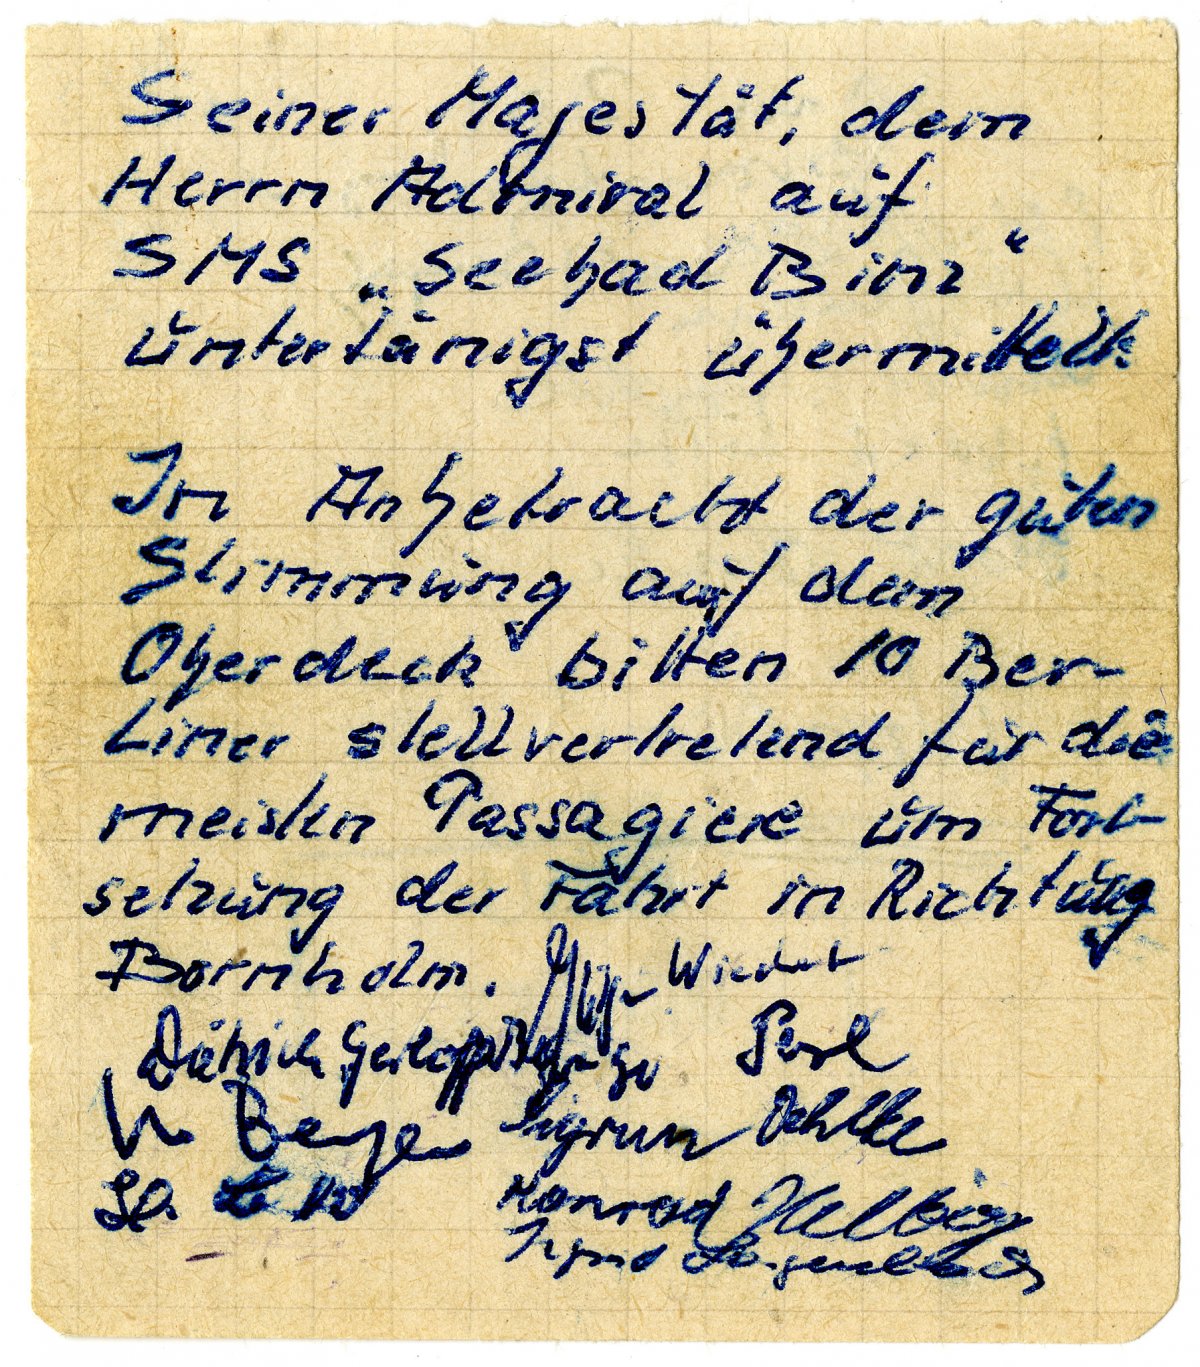 Seiner Majestät, dem
Herrn Admiral auf
SMS „Seebad Binz“
untertänigst übermittelt
In Anbetracht der guten
Stimmung auf dem
Oberdeck bitten 10 Ber-
liner stellvertretend für die
meisten Passagiere um Fort-
setzung der Fahrt in Richtung
Bornholm.
Perl
Sigrun Dehlke
Konrad Helbig